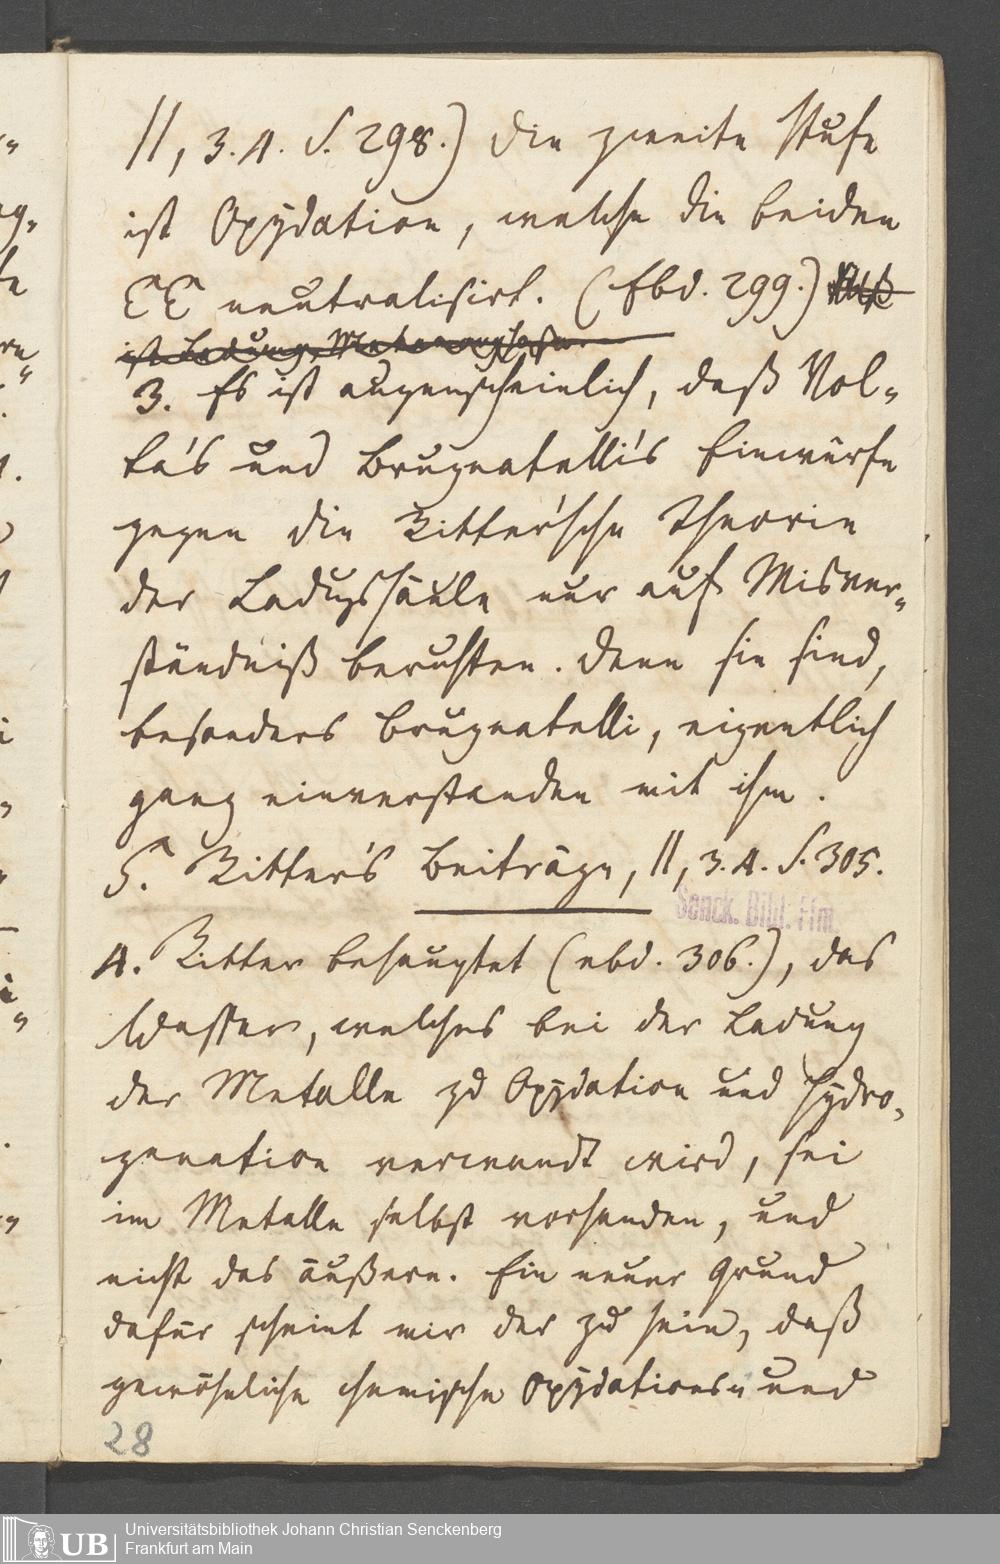 II, 3. A. S. 298.) Die zweite Stufe
ist Oxÿdation, welche die beiden
EE neutralisirt. (Ebd. 299.)
ist Ladung, Metamorphose.
3. Es ist augenscheinlich, daß Vol-
ta's und Brugnatelli's Einwürfe
gegen die Ritter'sche Theorie
der Ladugssäule nur auf Misver-
ständniß beruhten. Denn sie sind,
besonders Brugnatelli, eigentlich
ganz einverstanden mit ihm.
S. Ritter's Beiträge, II, 3. A. S. 305.
Senck. Bibl. Ffm.
4. Ritter behauptet (ebd. 306.), das
Wasser, welches bei der Ladung
der Metalle zu Oxÿdation und Hÿdro-
genation verwandt wird, sei
im Metalle selbst vorhanden, und
nicht das äußere. Ein neuer Grund
dafür scheint mir der zu sein, daß
gewöhnliche chemische Oxÿdations- und
28
UB
Universitätsbibliothek Johann Christian Senckenberg
Frankfurt am Main